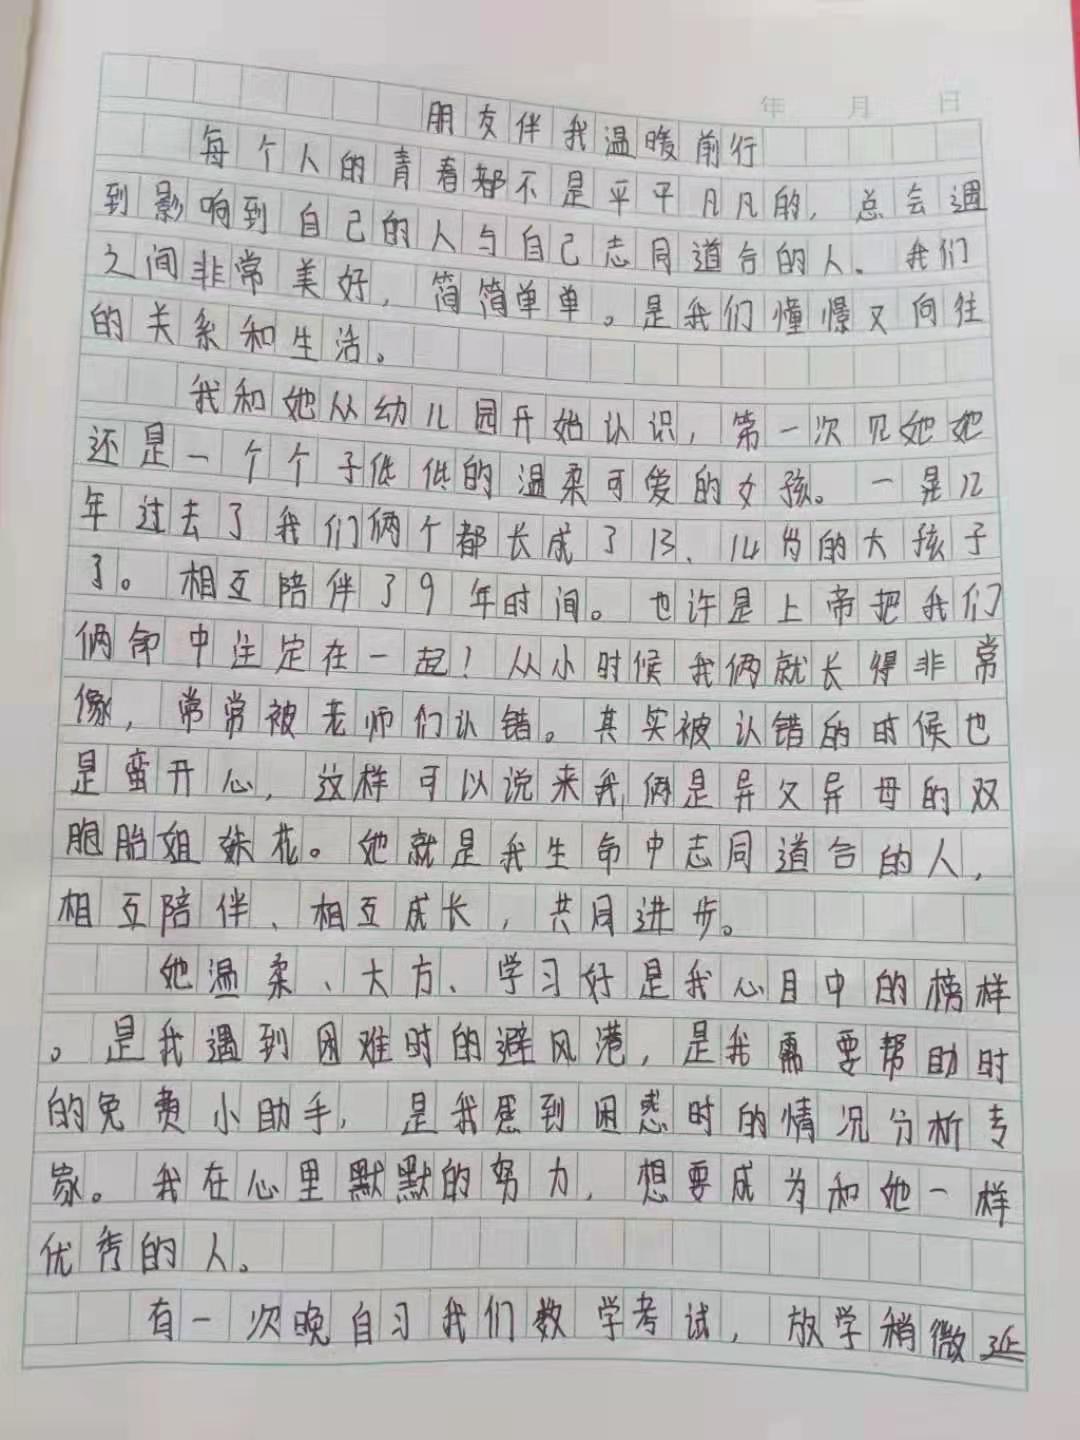 年 月 日
朋友伴我温暖前行
每个人的青春都不是平平凡凡的，总会遇
到影响到自己的人与自己志同道合的人。我们
之间非常美好，简简单单。是我们憧憬又向往
的关系和生活。
我和她从幼儿园开始认识，第一次见她她
还是一个个子低低的温柔可爱的女孩。一晃12
年过去了我们俩个都长成了13、14岁的大孩子
了。相互陪伴了9年时间。也许是上帝把我们
俩命中注定在一起！从小时候我俩就长得非常
像，常常被老师们认错。其实被认错的时候也
是蛮开心，这样可以说来我俩是异父异母的双
胞胎姐妹花。她就是我生命中志同道合的人，
相互陪伴、相互成长，共同进步。
她温柔、大方、学习好是我心目中的榜样
。是我遇到困难时的避风港，是我需要帮助时
的免费小助手，是我感到困惑时的情况分析专
家。我在心里默默的努力，想要成为和她一样
优秀的人。
有一次晚自习我们数学考试，放学稍微延